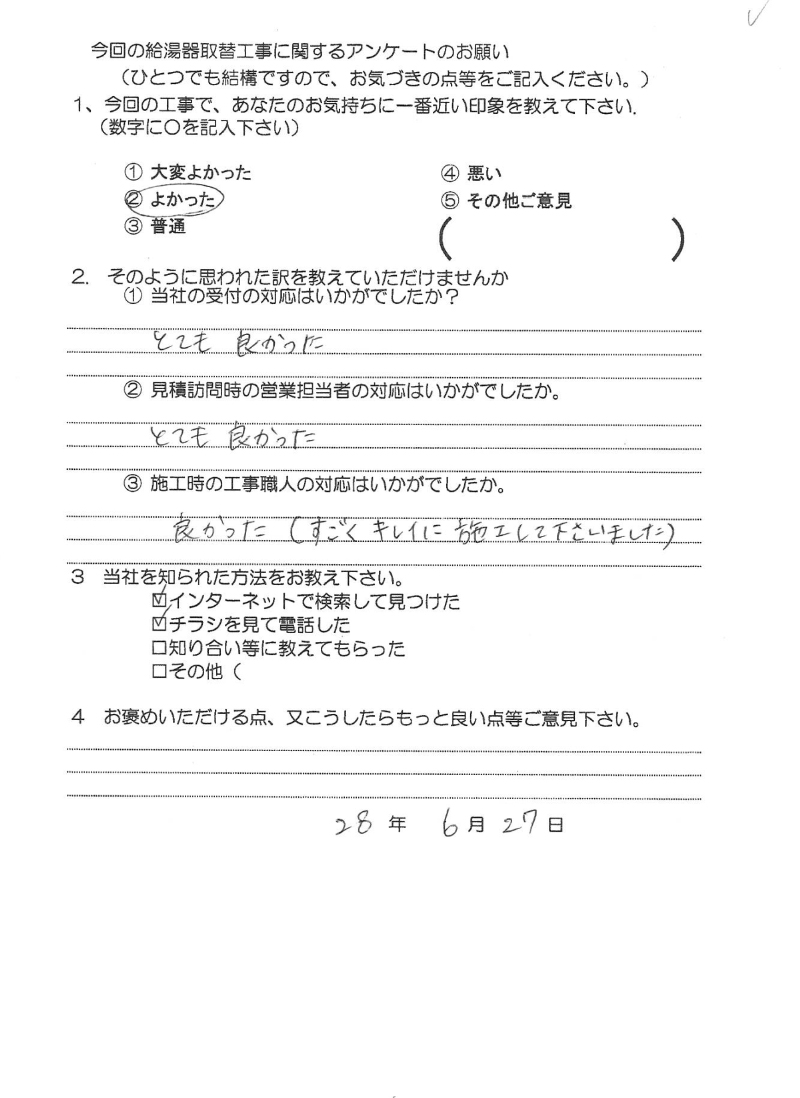 今回の給湯器取替工事に関するアンケートのお願い
（ひとつでも結構ですので、お気づきの点等をご記入ください。）
1、今回の工事で、あなたのお気持ちに一番近い印象を教えて下さい.
（数字に〇を記入下さい）
① 大変よかった
④ 悪い
② よかった
⑤ その他ご意見
③ 普通
（　　　）
2.　そのように思われた訳を教えていただけませんか
① 当社の受付の対応はいかがでしたか？
とても 良かった
② 見積訪問時の営業担当者の対応はいかがでしたか。
とても 良かった
③ 施工時の工事職人の対応はいかがでしたか。
良かった (すごく キレイに 施工して下さいました)
3　当社を知られた方法をお教え下さい。
☑インターネットで検索して見つけた
☑チラシを見て電話した
□知り合い等に教えてもらった
□その他（
4　お褒めいただける点、又こうしたらもっと良い点等ご意見下さい。
28 年　6 月 27 日